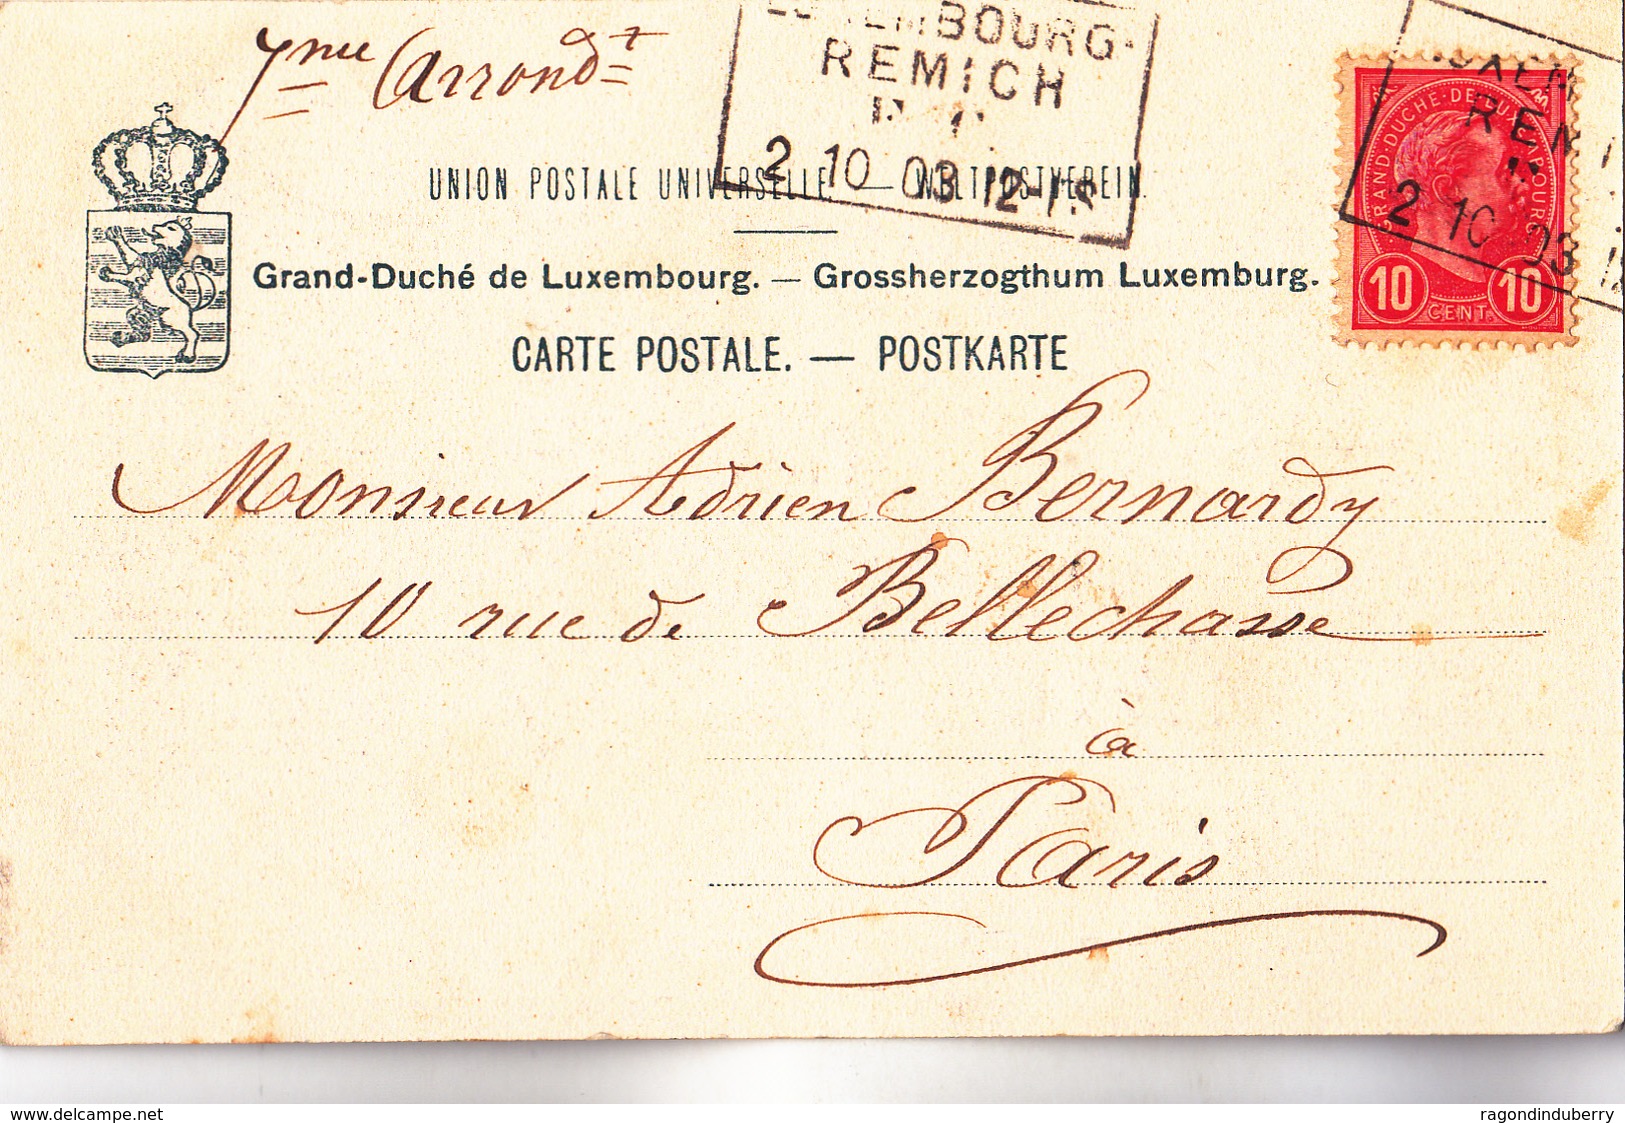 7me Arrondt
LUXEMBOURG-
REMICH
2 10 03 12-1S
UNION POSTALE UNIVERSELLE. — WELTPOSTVEREIN.
Grand-Duché de Luxembourg. — Grossherzogthum Luxemburg.
CARTE POSTALE. — POSTKARTE
GRAND-DUCHÉ·DE·LUXEMBOURG
10 CENT. 10
2 10 03
Monsieur Adrien Bernardy
10 rue de Bellechasse
à
Paris
www.delcampe.net
ragondinduberry